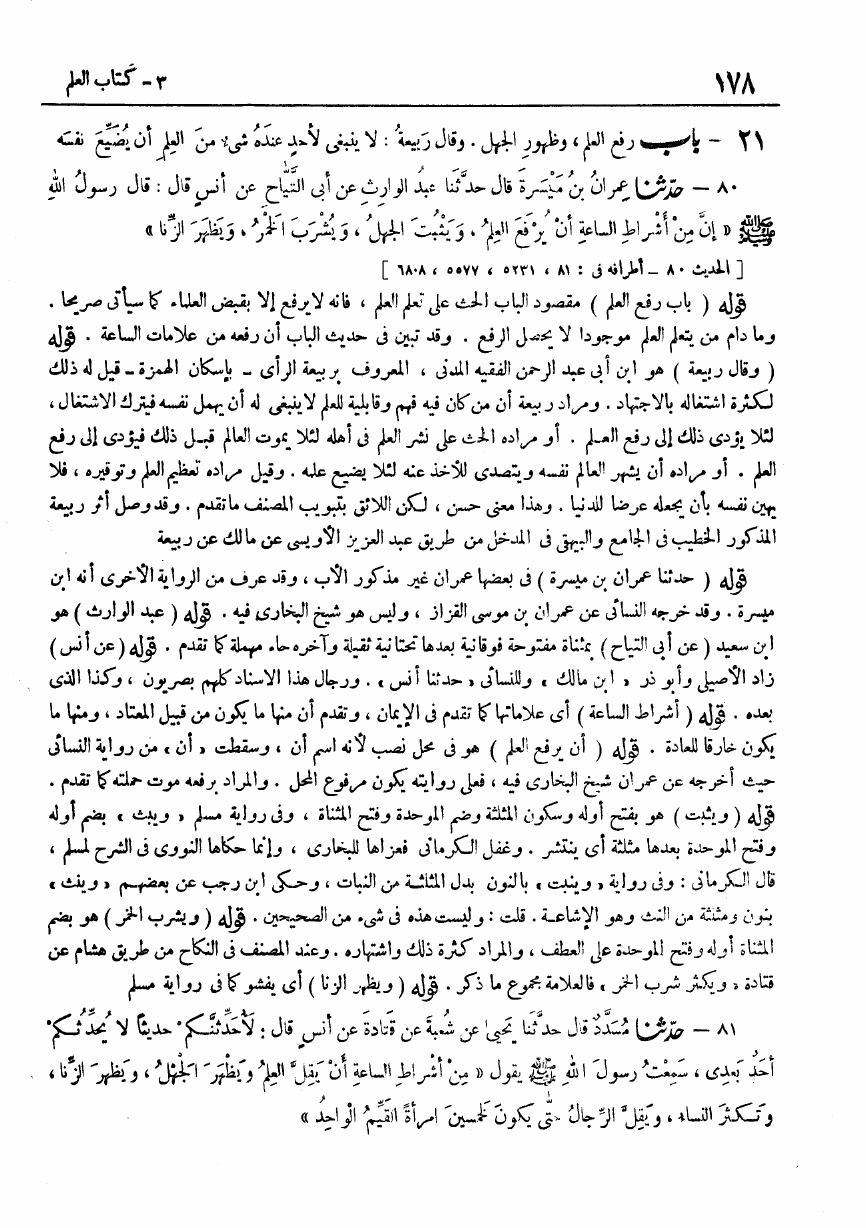 ١٧٨ ٣ - كتاب العلم
٢١ - باب رفع العلم ، وظهورِ الجهل . وقال رَبيعةُ : لا ينبغى لأحدٍ عندَهُ شىءٌ منَ العِلمِ أن يُضَيِّعَ نفسَه
٨٠ - حدّثنا عِمرانُ بنُ مَيْسَرةَ قال حدَّثَنا عبدُ الوارثِ عن أبى التَّيَّاحِ عن أنسٍ قال : قال رسولُ اللهِ
ﷺ « إنَّ مِنْ أشْراطِ الساعةِ أنْ يُرْفَعَ العِلمُ ، وَيَثْبُتَ الجهلُ ، وَيُشْرَبَ الخمْرُ ، وَيَظهَرَ الزِّنا »
[ الحديث ٨٠ - أطرافه فى : ٨١ ، ٥٢٣١ ، ٥٥٧٧ ، ٦٨٠٨ ]
قوله ( باب رفع العلم ) مقصود الباب الحث على تعلم العلم ، فانه لا يرفع إلا بقبض العلماء كما سيأتى صريحا .
وما دام من يتعلم العلم موجودا لا يحصل الرفع . وقد تبين فى حديث الباب أن رفعه من علامات الساعة . قوله
( وقال ربيعة ) هو ابن أبى عبد الرحمن الفقيه المدنى ، المعروف بربيعة الرأى - بإسكان الهمزة - قيل له ذلك
لكثرة اشتغاله بالاجتهاد . ومراد ربيعة أن من كان فيه فهم وقابلية للعلم لا ينبغى له أن يهمل نفسه فيترك الاشتغال ،
لئلا يؤدى ذلك إلى رفع العلم . أو مراده الحث على نشر العلم فى أهله لئلا يموت العالم قبل ذلك فيؤدى إلى رفع
العلم . أو مراده أن يشهر العالم نفسه ويتصدى للأخذ عنه لئلا يضيع علمه . وقيل مراده تعظيم العلم وتوقيره ، فلا
يهين نفسه بأن يجعله عرضا للدنيا . وهذا معنى حسن ، لكن اللائق بتبويب المصنف ما تقدم . وقد وصل أثر ربيعة
المذكور الخطيب فى الجامع والبيهقى فى المدخل من طريق عبد العزيز الأويسى عن مالك عن ربيعة
قوله ( حدثنا عمران بن ميسرة ) فى بعضها عمران غير مذكور الأب ، وقد عرف من الرواية الأخرى أنه ابن
ميسرة . وقد خرجه النسائى عن عمران بن موسى القزاز ، وليس هو شيخ البخارى فيه . قوله ( عبد الوارث ) هو
ابن سعيد ( عن أبى التياح ) بمثناة مفتوحة فوقانية بعدها تحتانية ثقيلة وآخره حاء مهملة كما تقدم . قوله ( عن أنس )
زاد الأصيلى وأبو ذر « ابن مالك » وللنسائى « حدثنا أنس » . ورجال هذا الاسناد كلهم بصريون ، وكذا الذى
بعده . قوله ( أشراط الساعة ) أى علاماتها كما تقدم فى الإيمان ، وتقدم أن منها ما يكون من قبيل المعتاد ، ومنها ما
يكون خارقا للعادة . قوله ( أن يرفع العلم ) هو فى محل نصب لأنه اسم أن ، وسقطت « أن » من رواية النسائى
حيث أخرجه عن عمران شيخ البخارى فيه ، فعلى روايته يكون مرفوع المحل . والمراد برفعه موت حملته كما تقدم .
قوله ( ويثبت ) هو بفتح أوله وسكون المثلثة وضم الموحدة وفتح المثناة ، وفى رواية مسلم « ويبث » بضم أوله
وفتح الموحدة بعدها مثلثة أى ينتشر . وغفل الكرمانى فعزاها للبخارى ، وإنما حكاها النووى فى الشرح لمسلم ،
قال الكرمانى : وفى رواية « وينبت » بالنون بدل المثلثة من النبات ، وحكى ابن رجب عن بعضهم « وينث »
بنون ومثلثة من النث وهو الإشاعة . قلت : وليست هذه فى شىء من الصحيحين . قوله ( ويشرب الخمر ) هو بضم
المثناة أوله وفتح الموحدة على العطف ، والمراد كثرة ذلك واشتهاره . وعند المصنف فى النكاح من طريق هشام عن
قتادة « ويكثر شرب الخمر » فالعلامة مجموع ما ذكر . قوله ( ويظهر الزنا ) أى يفشو كما فى رواية مسلم
٨١ - حدّثنا مُسَدَّدٌ قال حدَّثَنا يَحيىٰ عن شُعبةَ عن قَتادةَ عن أنسٍ قال : لَأُحَدِّثَنَّكم حديثًا لا يُحَدِّثُكم
أحَدٌ بَعدِى ، سَمِعْتُ رسولَ اللهِ ﷺ يقول « مِنْ أشْراطِ الساعةِ أَنْ يَقِلَّ العِلمُ وَيَظْهَرَ الجَهْلُ ، وَيَظهَرَ الزِّنا ،
وَتَكثرَ النساء ، وَيَقِلَّ الرِّجالُ حتَّى يكونَ لِخمسينَ امرأةً القَيِّمُ الْواحِدُ »